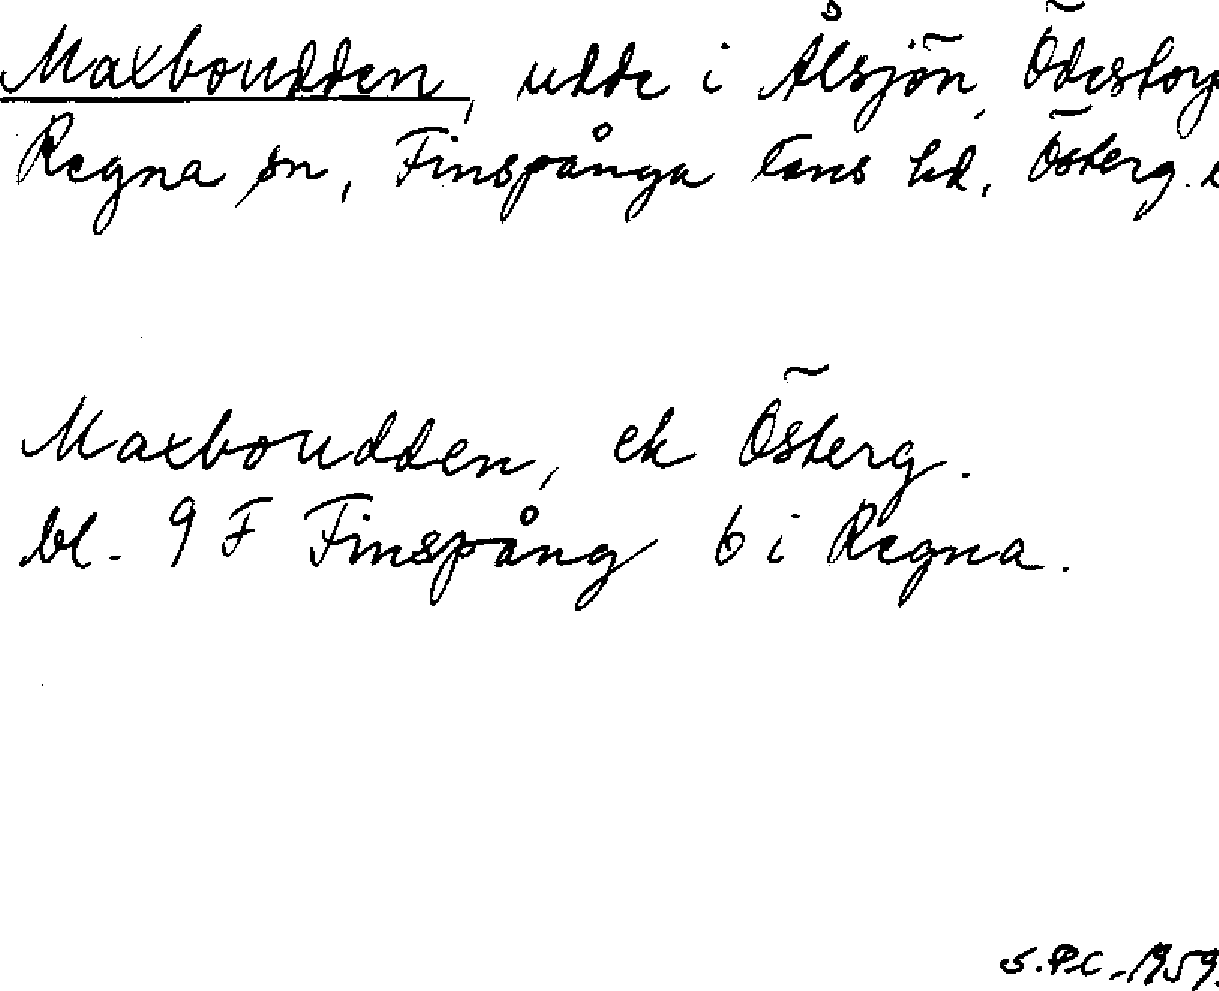 Maxboudden, udde i Ålsjön, Ödestorp
Regna sn, Finspånga läns hd, Österg. l
Maxboudden, ek Österg.
bl. 9 F Finspång 6 i Regna.
S.P.C. 1959.